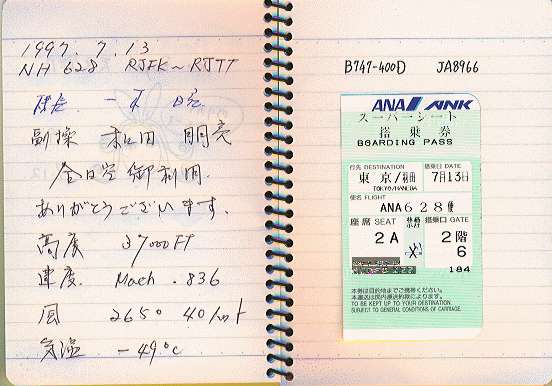 1997. 7. 13
NH 628 RJFK~RJTT
副操
全日空御利用.
ありがとうございます.
高度 37000FT
速度. Mach .836
風 265° 40/mt
気温 -49°C
B747-400D JA8966
ANA ANK
スーパーシート
搭乗券
BOARDING PASS
行先 DESTINATION 搭乗日 DATE
東京/羽田 7月13日
TOKYO/HANEDA
便名 FLIGHT
ANA628便
座席 SEAT 搭乗口 GATE
2A 2階
6
184
本券は目的地までご携帯ください。
本運送は国内運送約款によります。
TO BE KEPT UP TO YOUR DESTINATION.
SUBJECT TO GENERAL CONDITIONS OF CARRIAGE.